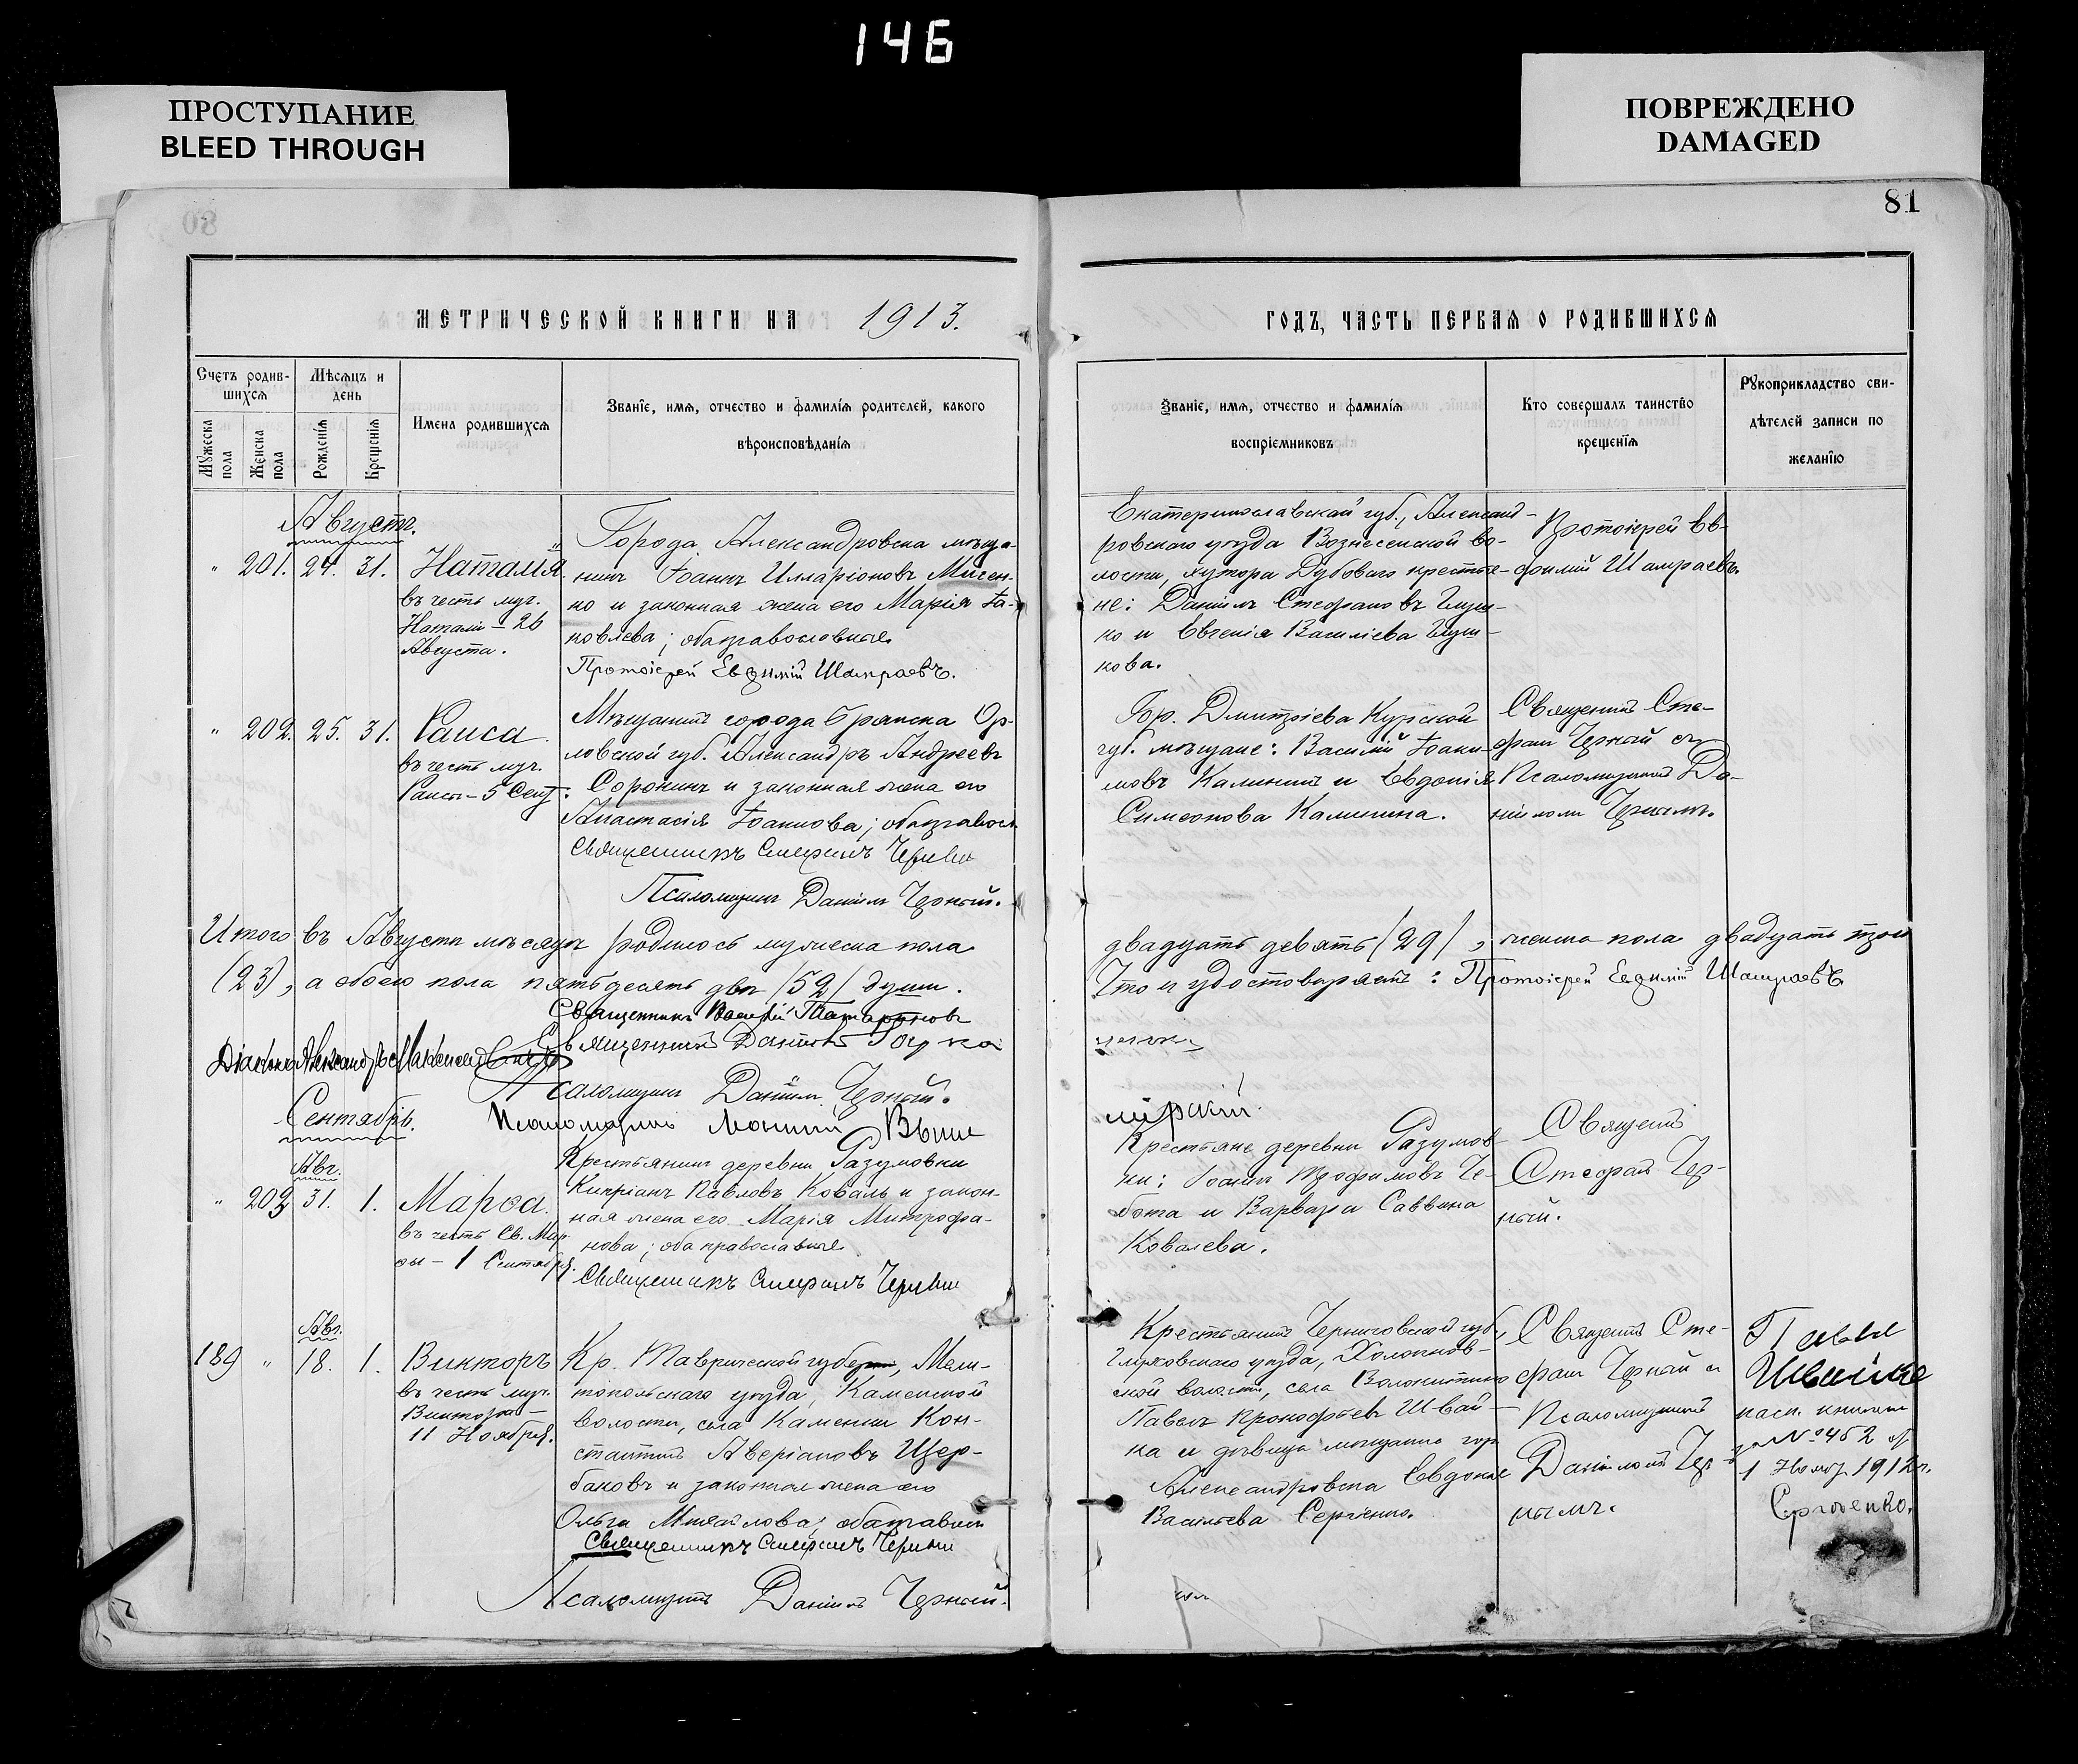 146
ПРОСТУПАНИЕ
BLEED THROUGH
ПОВРЕЖДЕНО
DAMAGED
81
МЕТРИЧЕСКОЙ КНИГИ НА 1913.
ГОДЪ, ЧАСТЬ ПЕРВАЯ О РОДИВШИХСЯ
Счетъ родив-
шихся
Мѣсяцъ и
день
Мужеска пола
Женска пола
Рожденія
Крещенія
Имена родившихся
Званіе, имя, отчество и фамилія родителей, какого
вѣроисповѣданія
Званіе, имя, отчество и фамилія
воспріемниковъ
Кто совершалъ таинство
крещенія
Рукоприкладство сви-
дѣтелей записи по
желанію
Августъ.
" 201. 24. 31. Наталія
въ честь муч.
Наталіи - 26
Августа.
Города Александровска мѣща-
нинъ Іоаннъ Иларіоновъ Мисен-
ко и законная жена его Марія Іа-
ковлева; оба православные.
Протоіерей Евѳимій Шамраевъ.
Екатеринославской губ., Александ-
ровскаго уѣзда Вознесенской во-
лости, хутора Дубоваго крестья-
не: Даніилъ Стефановъ Глуш-
ко и Евгенія Василіева Глуш-
кова.
Протоіерей Ев-
ѳимій Шамраевъ.
" 202. 25. 31. Раиса.
въ честь муч.
Раисы - 5 Сент.
Мѣщанинъ города Брянска Ор-
ловской губ. Александръ Андреевъ
Соронинъ и законная жена его
Анастасія Іоаннова; оба правосл.
Священникъ Стефанъ Черный
Псаломщикъ Даніилъ Черный.
Гор. Дмитріева Курской
губ. мѣщане: Василій Іоаки-
мовъ Калининъ и Евдокія
Симеонова Калинина.
Священникъ Сте-
фанъ Черный съ
Псаломщикомъ Да-
ніиломъ Чернымъ.
Итого въ Августѣ мѣсяцѣ родилось мужеска пола
двадцать девять (29), женска пола двадцать три
(23), а обоего пола пятьдесятъ двѣ (52) души.
Что и удостовѣряетъ: Протоіерей Евѳимій Шамраевъ
Священникъ Василій
Священникъ Даніилъ
Діаконъ Александръ
Псаломщикъ Даніилъ Черный.
Псаломщикъ
Сентябрь.
Авг.
" 203 31. 1. Марѳа.
въ честь Св. Мар-
ѳы - 1 Сентября.
Крестьянинъ деревни Разумовки
Кипріанъ Павловъ Коваль и закон-
ная жена его Марія Митрофа-
нова; оба православные.
Священникъ Стефанъ Черный
Крестьяне деревни Разумов-
ки: Іоаннъ Трофимовъ Че-
бота и Варвара Саввина
Ковалева.
Священникъ
Стефанъ Чер-
ный.
Авг.
189 " 18. 1. Викторъ
въ честь муч.
Виктора -
11 Ноября.
Кр. Таврической губерніи, Мели-
топольскаго уѣзда, Каменской
волости, села Каменки Кон-
стантинъ Аверіановъ Щер-
баковъ и законная жена его
Ольга Михайлова; оба правосл.
Священникъ Стефанъ Черный
Псаломщикъ Даніилъ Черный.
Крестьянинъ Черниговской губ.,
Глуховскаго уѣзда, Холопков-
ской волости, села Волокитино
Павелъ Прокофьевъ Швай-
ка и дѣвица мѣщанка гор.
Александровска Евдокія
Васильева Сергіенко.
Священникъ Сте-
фанъ Черный съ
Псаломщикомъ
Даніиломъ Чер-
нымъ.
Павелъ
Швайка
пасп. книжка
за № 452 от
1 Нояб. 1912 г.
Сергіенко.